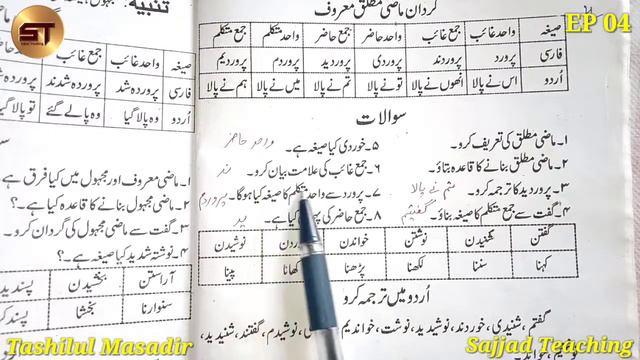 EP 04
ST
گردان ماضی مطلق معروف
صیغہ واحد غائب جمع غائب واحد حاضر جمع حاضر واحد متکلم جمع متکلم
فارسی پرورد پروردند پروردی پروردید پروردم پروردیم
اُردو اس نے پالا انھوں نے پالا تو نے پالا تم نے پالا میں نے پالا ہم نے پالا
سوالات
۱۔ ماضی مطلق کی تعریف کرو۔ ۵۔ خوردی کیا صیغہ ہے۔ واحد حاضر
۲۔ ماضی مطلق بنانے کا قاعدہ بتاؤ۔ ۶۔ جمع غائب کی علامت بیان کرو۔ ند
۳۔ پروردید کا ترجمہ کرو۔ تم نے پالا ۷۔ پرورد سے واحد متکلم کا صیغہ کیا ہوگا۔ پروردم
۴۔ گفت سے جمع متکلم کا صیغہ بناؤ۔ گفتیم ۸۔ جمع حاضر کی کیا ہے۔ ید
گفتن شنیدن نوشتن خواندن نوشیدن
کہنا سننا لکھنا پڑھنا کھانا پینا
اُردو میں ترجمہ کرو
گفتم، شنیدی، خوردند، نوشیدید، نوشت، خواندیم، نوشیدم، گفتند، شنیدید،
تنبیہ:
صیغہ واحد غائب جمع غائب
فارسی پروردہ شد پروردہ شدند پروردہ شد
اُردو وہ پالا گیا وہ پالے گئے تو پالا گیا
۱۔ ماضی معروف اور مجہول میں کیا فرق ہے
۲۔ ماضی مجہول بنانے کا قاعدہ کیا ہے؟
۳۔ گفت سے ماضی مجہول کی گردان کرو۔
۴۔ نوشتہ شدید کیا صیغہ ہے۔؟
آراستن بخشیدن
سنوارنا بخشنا
Tashilul Masadir
Sajjad Teaching